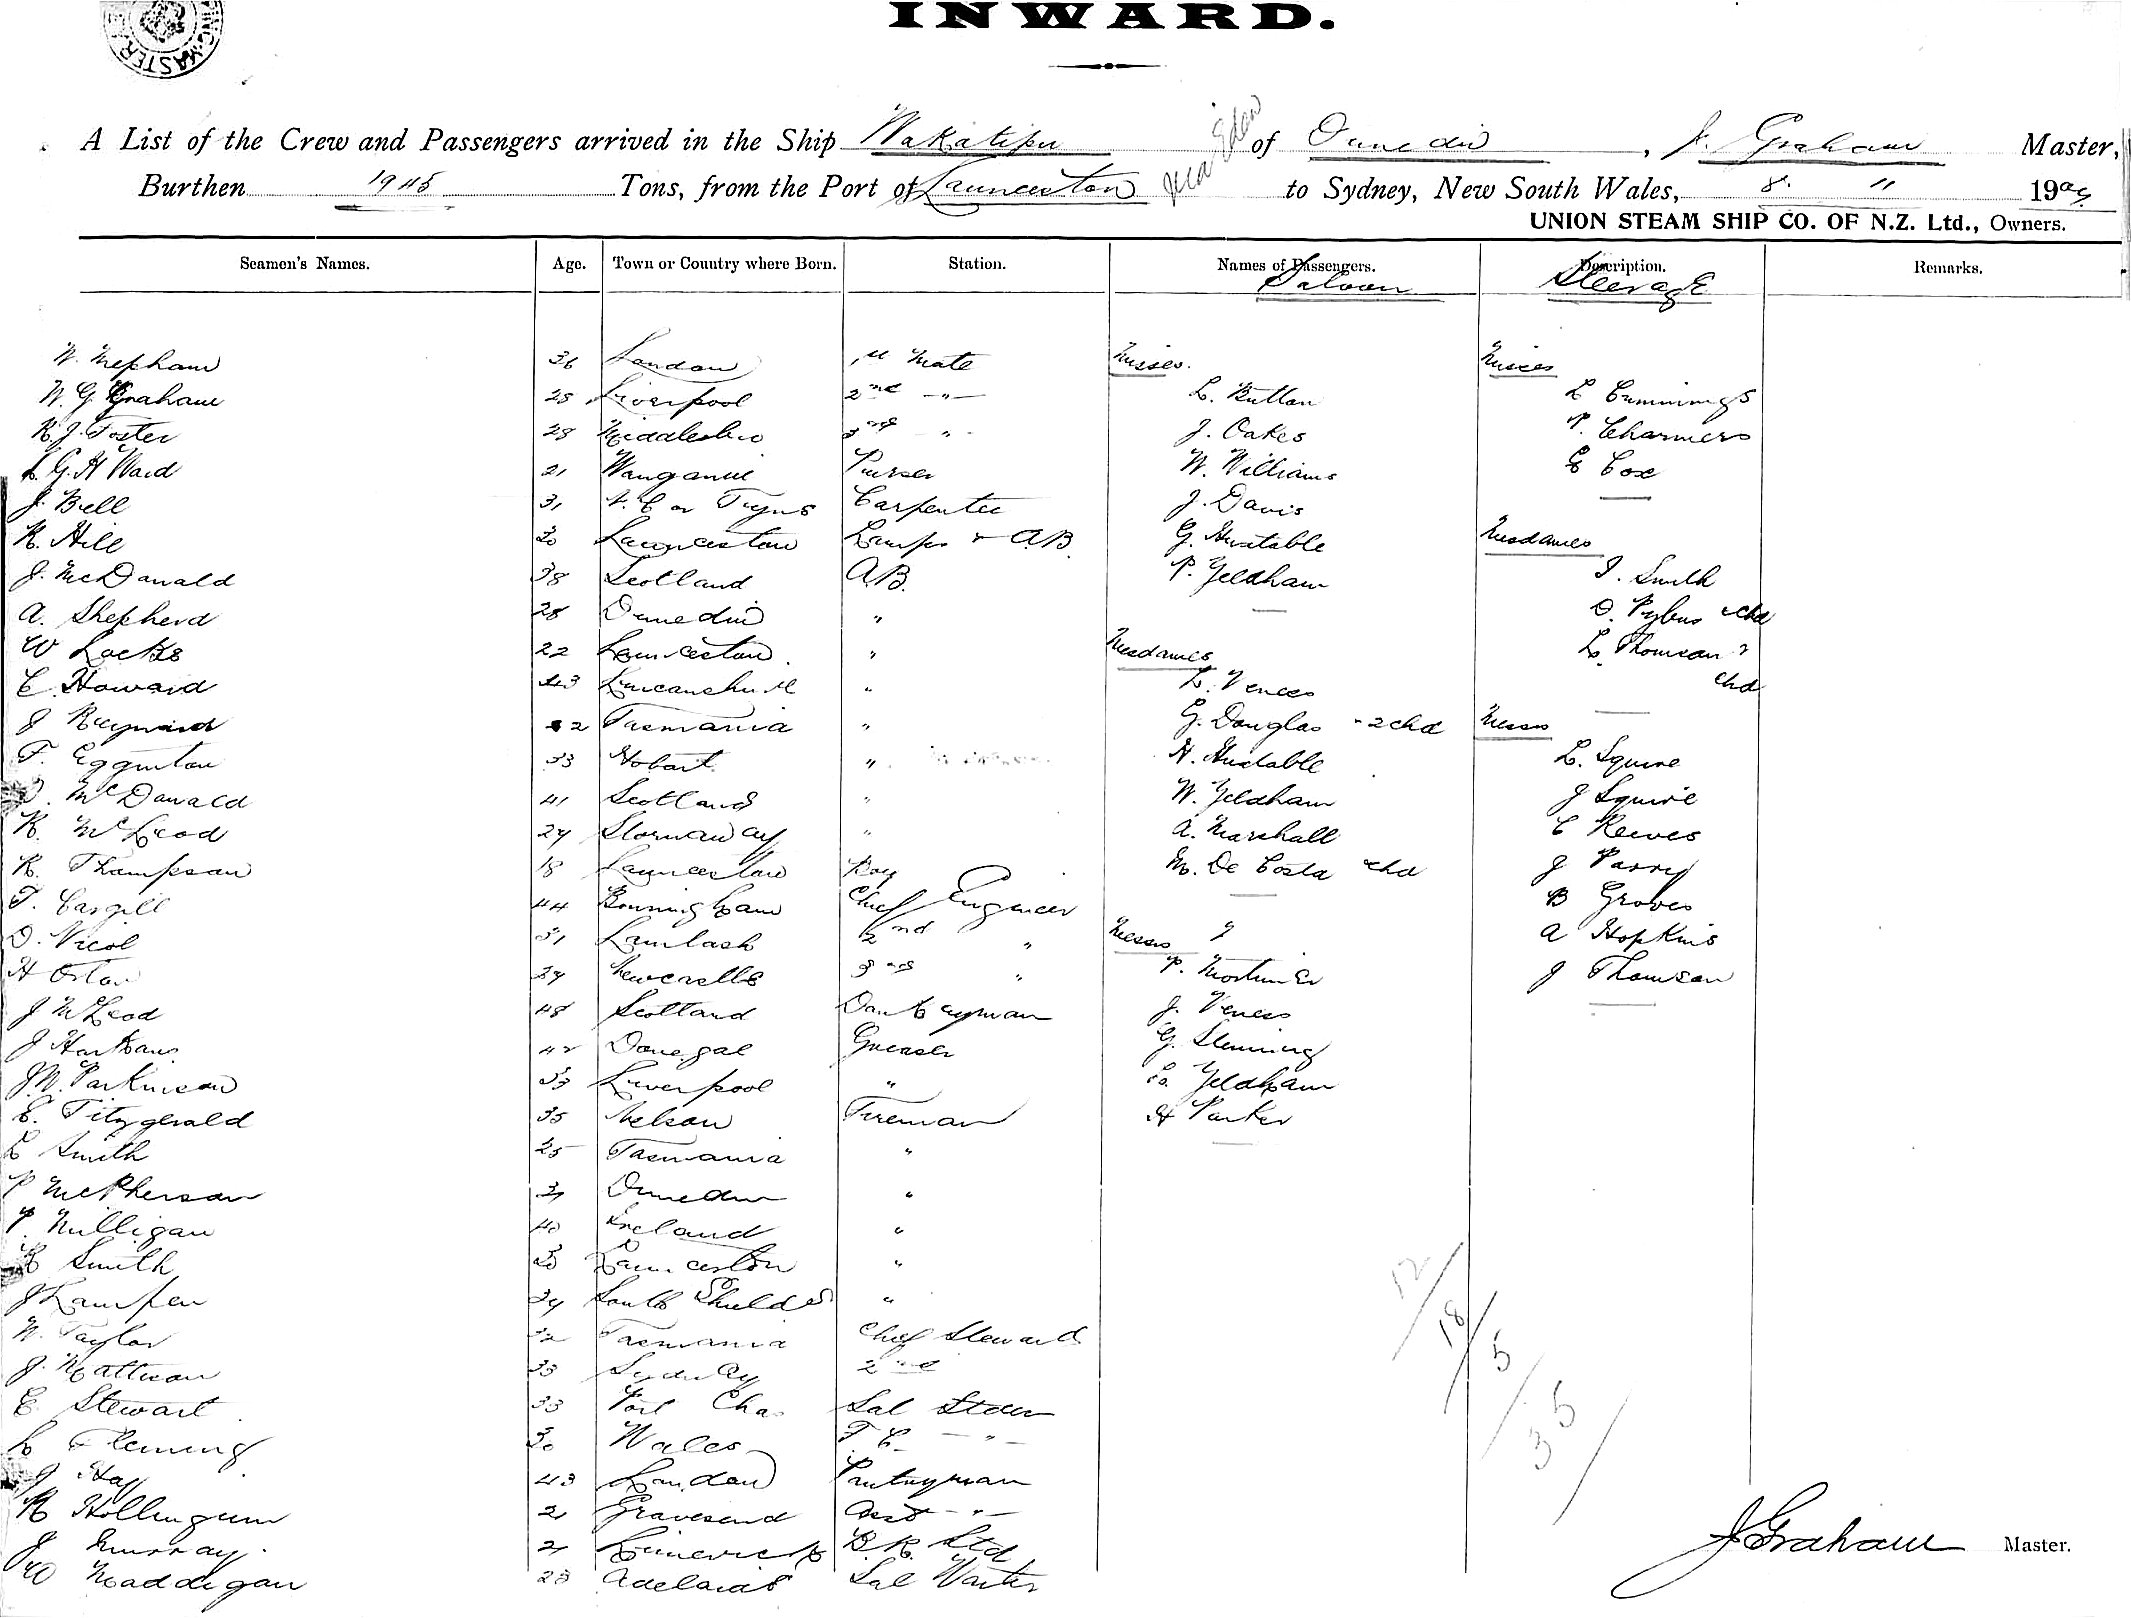 INWARD.
MASTER
A List of the Crew and Passengers arrived in the Ship Wakatipu of Dunedin, J. Graham Master,
Burthen 1945 Tons, from the Port of Launceston via Eden to Sydney, New South Wales, 8. 11 1909
UNION STEAM SHIP CO. OF N.Z. Ltd., Owners.
Seamen's Names. Age. Town or Country where Born. Station. Names of Passengers. Description. Remarks.
Saloon Steerage
W. Mepham 36 London 1st Mate Misses. Misses
W. G. Graham 25 Liverpool 2nd -"- L. Rutton L Cummings
R. J. Foster 28 Middlesbro 3rd " J. Oakes P. Charmers
L. G. H Ward 21 Wanganui Purser W. Williams E Cox
J. Bell 31 N. C on Tyne Carpenter J. Davis
R. Hill 30 Launceston Lamps & AB. G. Huxtable Mesdames
J. McDonald 38 Scotland A.B. P. Yeldham I. Smith
A. Shepherd 28 Dunedin " O. Pybus & chd
W Locks 22 Launceston " Mesdames L. Thomson &
C. Howard 43 Lancashire " L. Veness chd
J Raymond 2 Tasmania " G. Douglas - 2 chd Messrs
F. Egginton 33 Hobart " H. Huxtable L. Squire
McDonald 41 Scotland " W. Yeldham J Squire
K. McLeod 29 Stornaway " A. Marshall C Reeves
R. Thompson 18 Launceston Boy M. De Costa & chd J Parry
T. Cargill 44 Birmingham Chief Engineer B Groves
D. Nicol 31 Lamlash 2nd " Messrs A Hopkins
H Orton 39 Newcastle 3rd " P. Mortimer J Thomson
J McLeod 48 Scotland Donkeyman J. Veness
J Harkans 42 Donegal Greaser G. Fleming
J. M. Parkinson 33 Liverpool " Yeldham
E. Fitzgerald 35 Nelson Fireman H Parker
L Smith 25 Tasmania "
P McPherson Dunedin "
P. Milligan 40 Ireland "
Smith 30 Launceston "
J Lampen 39 South Shields "
W. Taylor 32 Tasmania Chief Steward
J. Mattison 33 Sydney 2nd
C Stewart 33 Port Cha. Sal Stdess
L Fleming 30 Wales F C - " -
J Hay 43 London Pantryman
R Hollingum 21 Gravesend Asst - " -
J Murray 21 Limerick B. R. Std
W Maddigan 28 Adelaide Sal Waiter
12/18/5/35
J Graham Master.